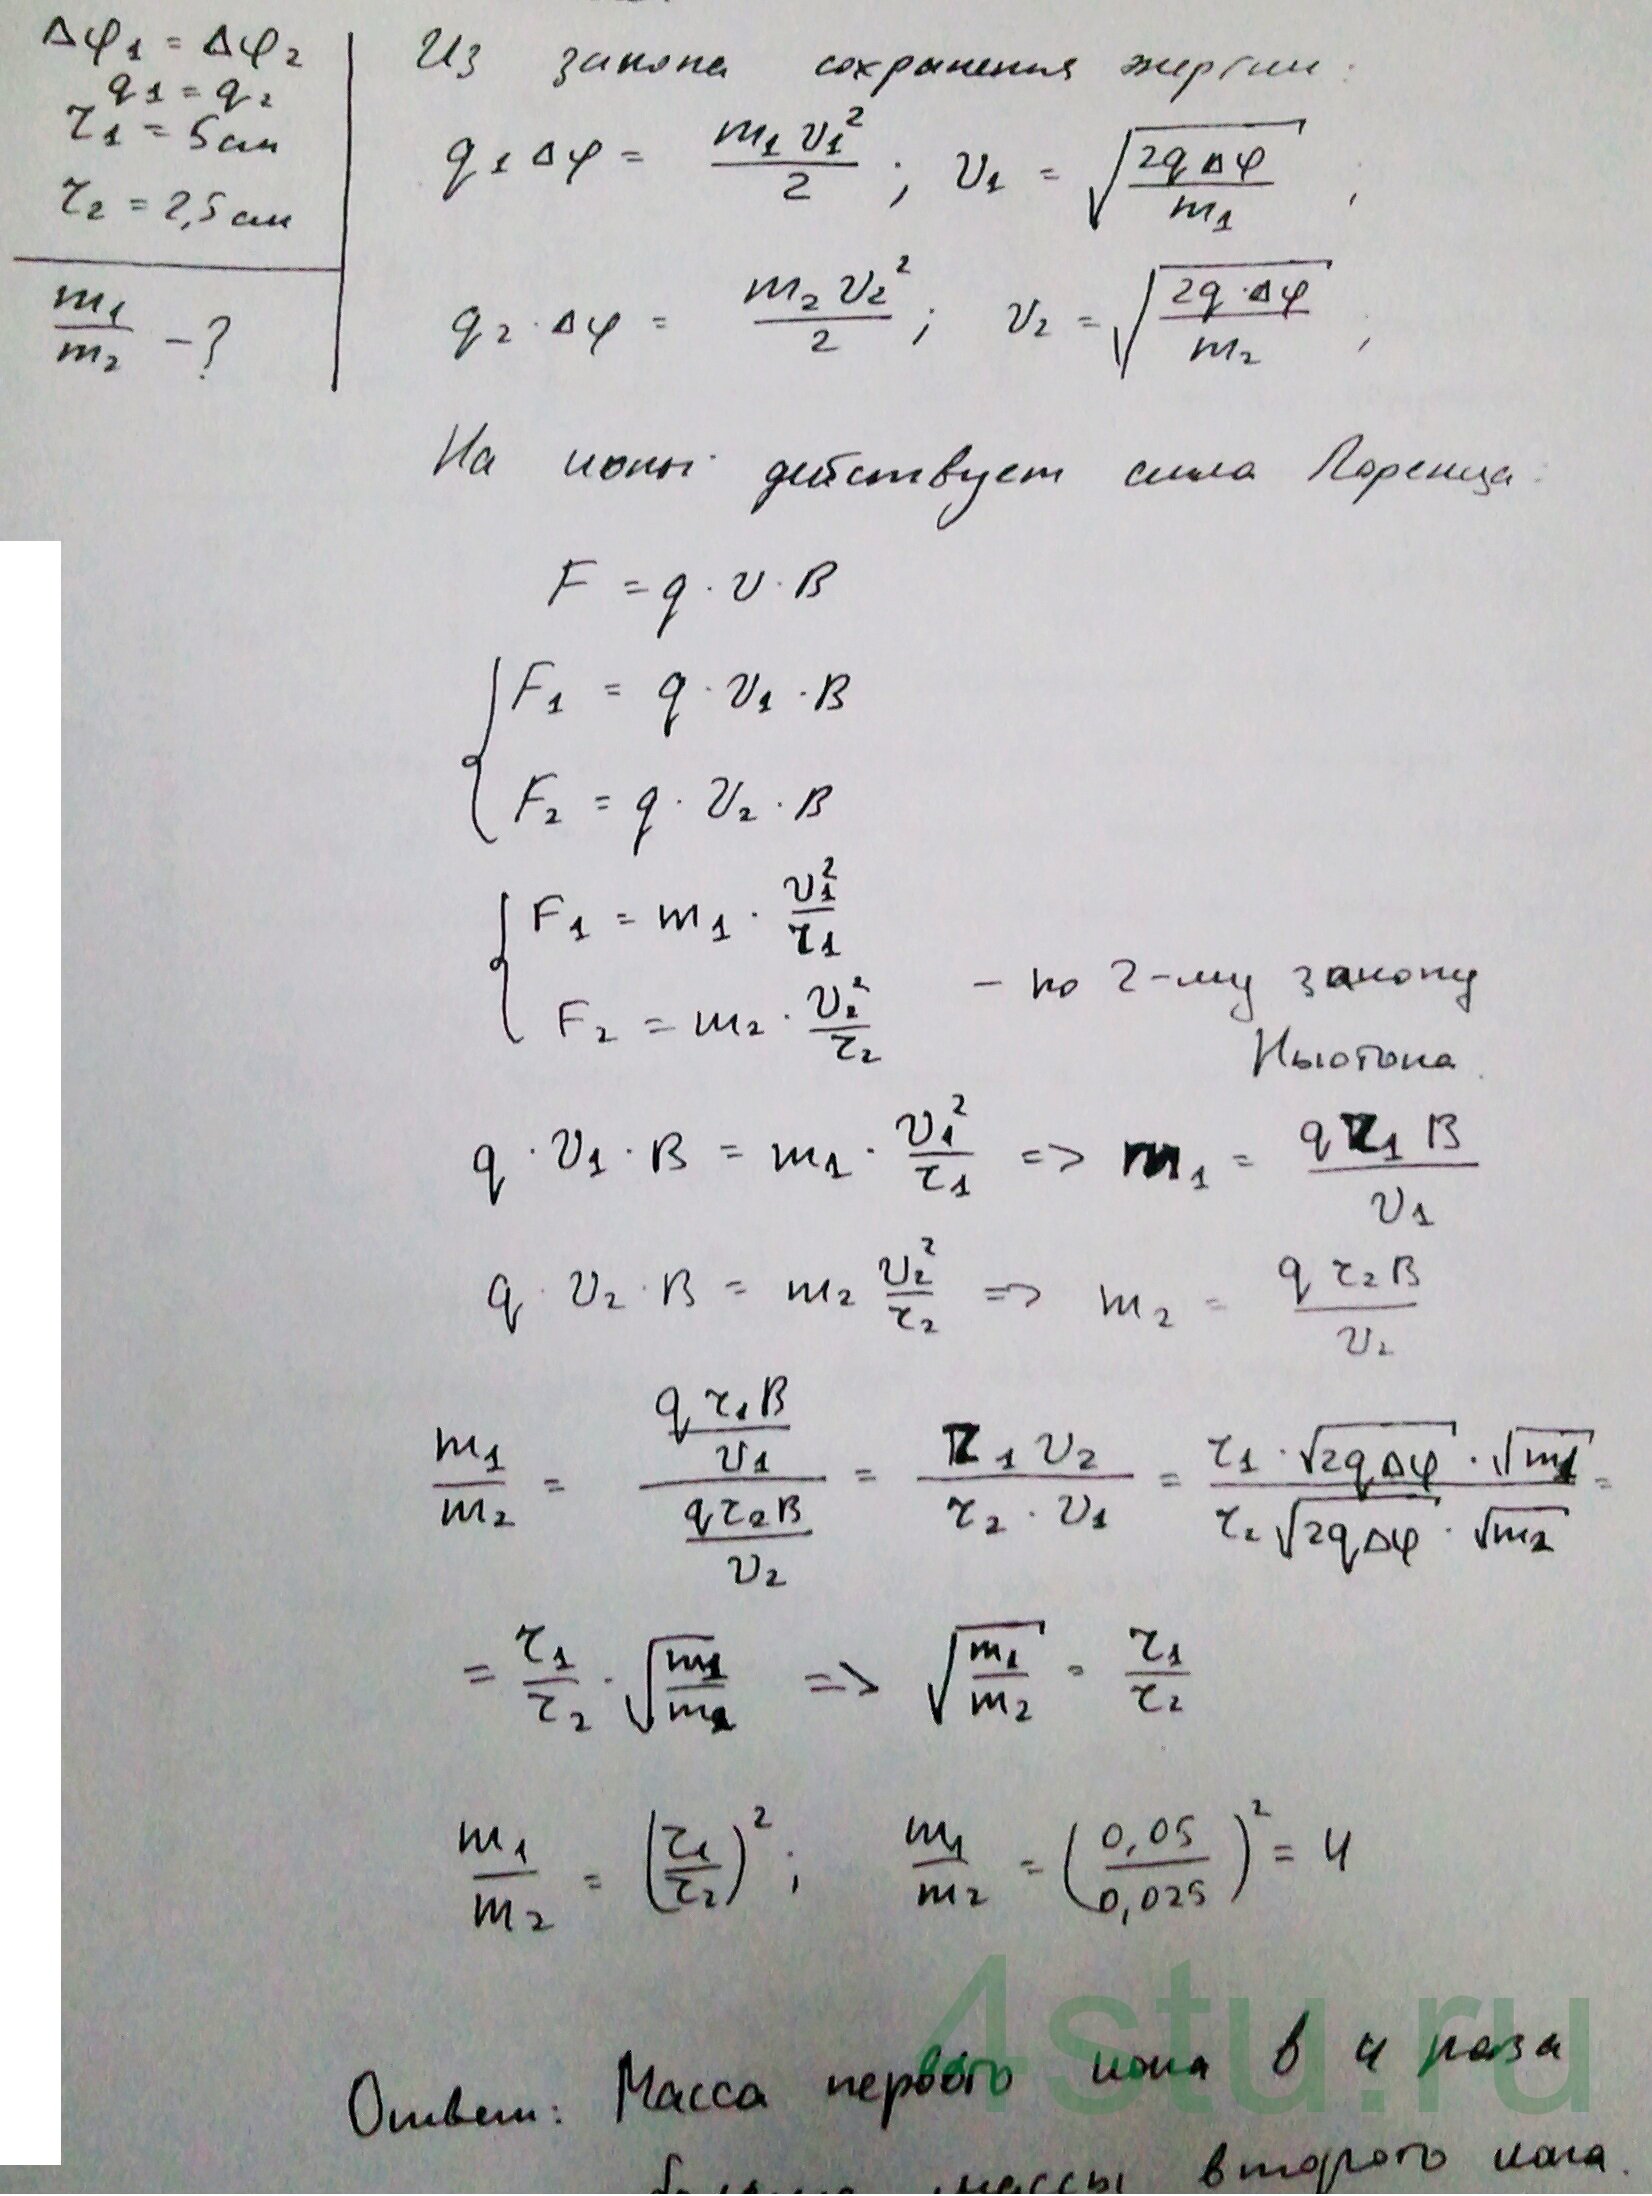 Δφ₁ = Δφ₂
q₁ = q₂
τ₁ = 5см
τ₂ = 2,5см
m₁/m₂ - ?
Из закона сохранения энергии:
q₁Δφ = m₁v₁²/2 ; v₁ = √(2qΔφ/m₁) ;
q₂·Δφ = m₂v₂²/2 ; v₂ = √(2q·Δφ/m₂) ;
На ионы действует сила Лоренца:
F = q·v·B
{ F₁ = q·v₁·B
F₂ = q·v₂·B
{ F₁ = m₁·v₁²/τ₁
F₂ = m₂·v₂²/τ₂ - по 2-му закону
Ньютона.
q·v₁·B = m₁·v₁²/τ₁ => m₁ = qτ₁B/v₁
q·v₂·B = m₂ v₂²/τ₂ => m₂ = qτ₂B/v₂
m₁/m₂ = (qτ₁B/v₁)/(qτ₂B/v₂) = τ₁v₂/(τ₂·v₁) = (τ₁·√(2qΔφ)·√m₁)/(τ₂√(2qΔφ)·√m₂) =
= τ₁/τ₂·√(m₁/m₂) => √(m₁/m₂) = τ₁/τ₂
m₁/m₂ = (τ₁/τ₂)² ; m₁/m₂ = (0,05/0,025)² = 4
4stu.ru
Ответ: Масса первого иона в 4 раза
больше массы второго иона.